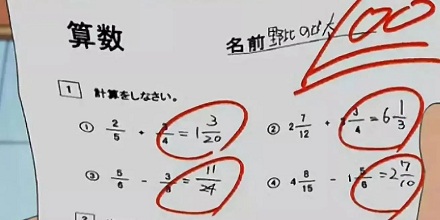 算数
名前 野比のび太
100
1 計算をしなさい。
① 2/5 + 3/4 = 1 3/20
② 2 7/12 + 3 3/4 = 6 1/3
③ 5/6 - 3/8 = 11/24
④ 4 8/15 - 1 5/6 = 2 7/10